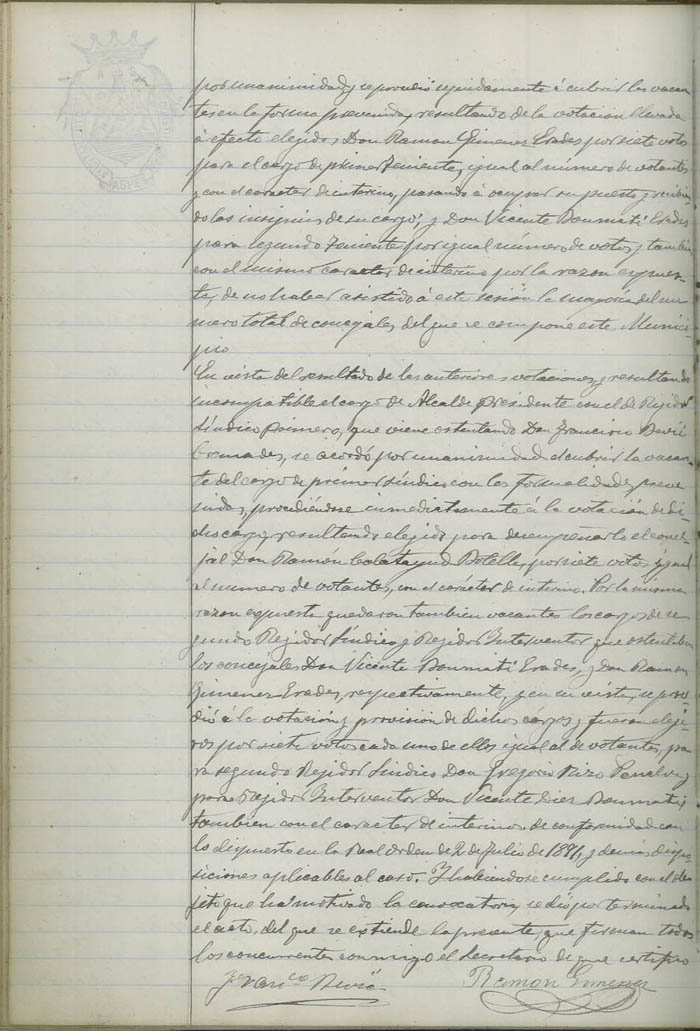 por unanimidad, y se procedió seguidamente á cubrir las vacan-
tes en la forma prevenida, resultando de la votacion llevada
á efecto elejidos Don Ramon Gimenez Erades por siete votos
para el cargo de primer Teniente, igual al número de votantes
y con el caracter de interino, pasando á ocupar su puesto y recibien-
do las insignias de su cargo; y Don Vicente Boumatí Erades
para segundo Teniente por igual número de votos y tambien
con el mismo caracter de interino por la razon expues-
ta, de no haber asistido á esta sesión la mayoria del nú-
mero total de concejales del que se compone este Munici-
pio
En vista del resultado de las anteriores votaciones, y resultando
incompatible el cargo de Alcalde presidente con el de Rejidor
Síndico primero, que viene ostentando Don Francisco
Cremades, se acordó por unanimidad cubrir la vacan-
te del cargo de primer síndico con las formalidades preve-
nidas, procediéndose inmediatamente á la votación de di-
cho cargo, resultando elejido para desempeñarlo el conce-
jal Don Ramón Calatayud Botella, por siete votos, igual
al numero de votantes, con el carácter de interino. Por la misma
razon expuesta quedaron tambien vacantes los cargos de se-
gundo Rejidor Síndico y Rejidor Interventor que ostentaban
los concejales Don Vicente Boumatí Erades, y Don Ramon
Gimenez Erades, respectivamente, y en su vista, se proce-
dió á la votación y provisión de dichos cargos y fueron eleji-
dos por siete votos cada uno de ellos igual al de votantes, pa-
ra segundo Rejidor Síndico Don Gregorio Rizo Penalva y
para Rejidor Interventor Don Vicente Dies Boumatí,
tambien con el caracter de interinos de conformidad con
lo dispuesto en la Real Orden de 2 de Julio de 1891, y demás dispo-
siciones aplicables al caso. Y habiendose cumplido con el ob-
jeto que ha motivado la convocatoria, se dió por terminado
el acto, del que se extiende la presente, que firman todos
los concurrentes conmigo el Secretario de que certifico
Franco Ramon Gimenez